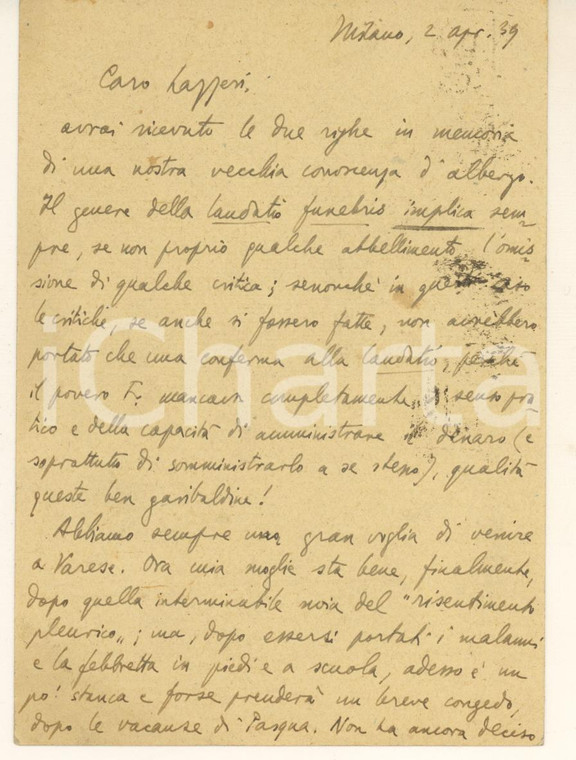 Milano, 2 apr. 39
Caro Lazzeri,
avrai ricevuto le due righe in memoria
di una nostra vecchia conoscenza d'albergo.
Il genere della laudatio funebris implica sem-
pre, se non proprio qualche abbellimento, l'omis-
sione di qualche critica; senonché in questo caso
le critiche, se anche si fossero fatte, non avrebbero
portato che una conferma alla laudatio, perché
il povero F. mancava completamente di senso pra-
tico e della capacità di amministrare il denaro (e
soprattutto di somministrarlo a se stesso), qualità
queste ben garibaldine!
Abbiamo sempre una gran voglia di venire
a Varese. Ora mia moglie sta bene, finalmente,
dopo quella interminabile noia del "risentimento
pleurico"; ma, dopo essersi portati i malanni
e la febbretta in piedi e a scuola, adesso è un
po' stanca e forse prenderà un breve congedo,
dopo le vacanze di Pasqua. Non ha ancora deciso.
iCharta